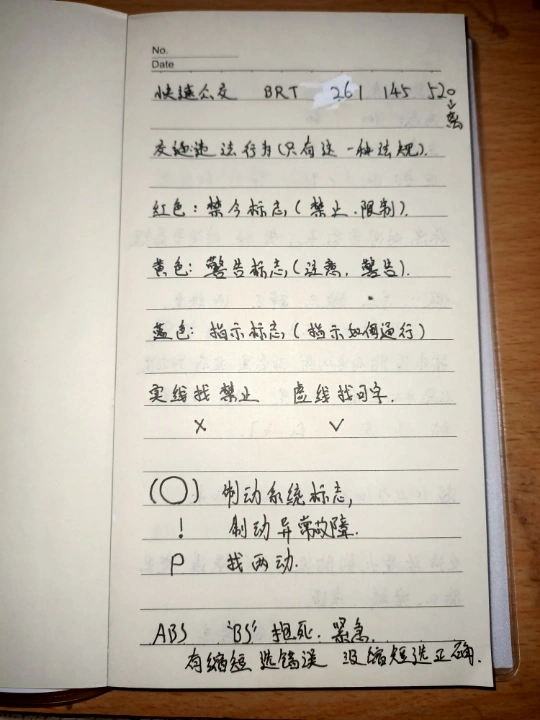 No.
Date
快速公交 BRT 261 145 520→离
交通违法行为(只有这一种法规).
红色:禁令标志,(禁止.限制).
黄色:警告标志,(注意,警告).
蓝色:指示标志,(指示如何通行)
实线找禁止 虚线找可字.
× ✓
(○) 制动系统标志,
! 制动异常故障.
P 找两动.
ABS "BS" 抱死.紧急.
有缩短选错误 没缩短选正确.